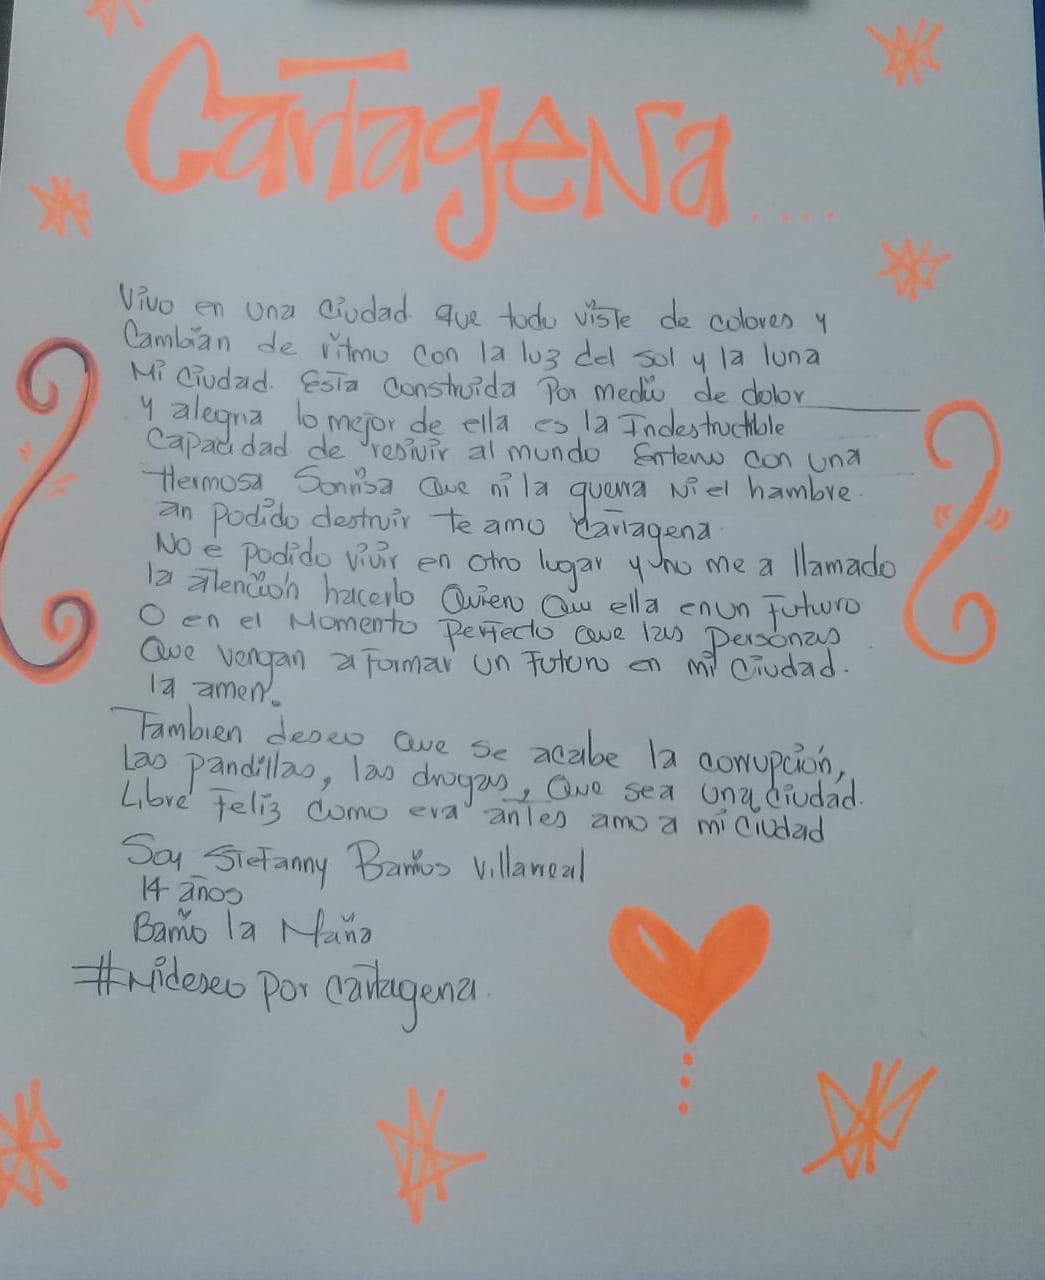 Cartagena....
Vivo en una ciudad que todo viste de colores y
Cambian de ritmo con la luz del sol y la luna
Mi ciudad. Esta construida Por medio de dolor
y alegria lo mejor de ella es la Indestructible
Capacidad de resivir al mundo Entero con una
Hermosa Sonrisa Que ni la guerra Ni el hambre.
an podido destruir te amo Cartagena.
No e podido vivir en otro lugar y no me a llamado
la atención hacerlo Quiero Que ella en un Futuro
O en el Momento Perfecto Que las Personas
Que vengan a Formar un Futuro en mi Ciudad.
la amen.
Tambien deseo Que se acabe la corrupción,
Las pandillas, las drogas, Que sea una ciudad.
Libre Feliz Como era antes amo a mi Ciudad
Soy Stefanny Barrios Villarreal
14 años
Barrio la Maria
#Mideseo por cartagena.